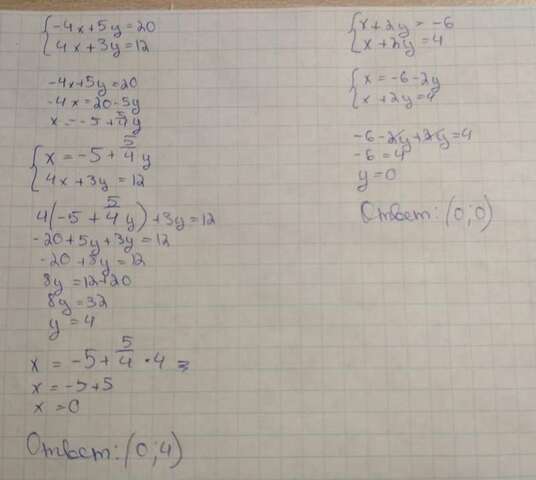 {-4x+5y=20
{4x+3y=12
-4x+5y=20
-4x=20-5y
x=-5+5/4y
{x=-5+5/4y
{4x+3y=12
4(-5+5/4y)+3y=12
-20+5y+3y=12
-20+8y=12
8y=12+20
8y=32
y=4
x=-5+5/4·4=
x=-5+5
x=0
Ответ: (0;4)
{x+2y=-6
{x+2y=4
{x=-6-2y
{x+2y=4
-6-2y+2y=4
-6=4
y=0
Ответ: (0;0)